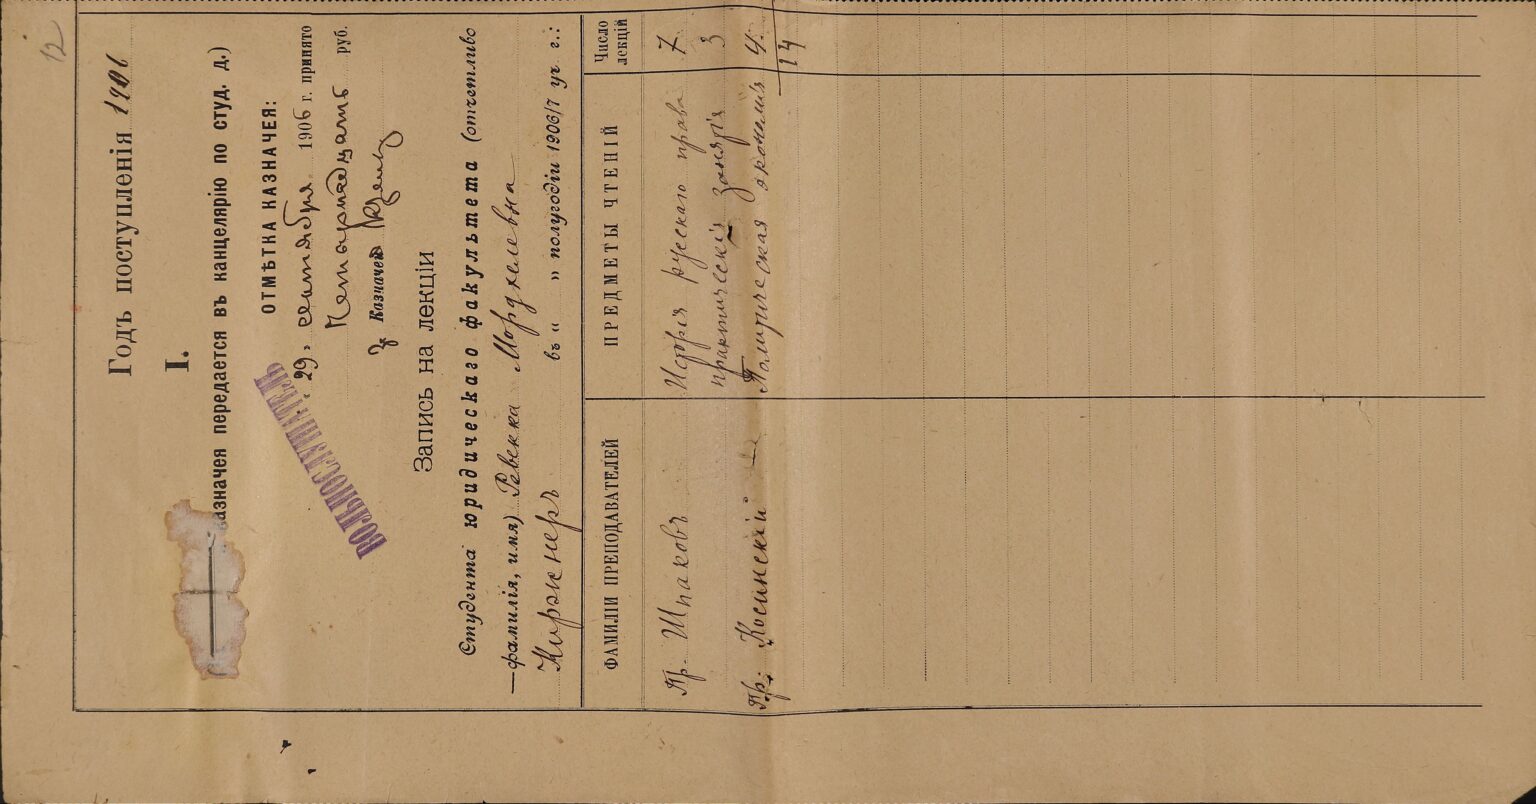 12
Годъ поступленія 1906
I.
казначея передается въ канцелярію по студ. д.)
ОТМѢТКА КАЗНАЧЕЯ:
„29„ сентября 1906 г. принято
Четырнадцать руб.
Казначей
ВОЛЬНОСЛУШАТЕЛЬ
Запись на лекціи
Студента юридическаго факультета (отчетливо
—фамилія, имя) Ревекка Мордхелевна
Киржнеръ въ „ „ полугодіи 1906/7 уч г.:
ФАМИЛІИ ПРЕПОДАВАТЕЛЕЙ ПРЕДМЕТЫ ЧТЕНІЙ Число лекцій
Пр. Шпаковъ Исторія русскаго права 7
практическія занятія 3
Пр. Косинскій — Политическая экономія 4
14